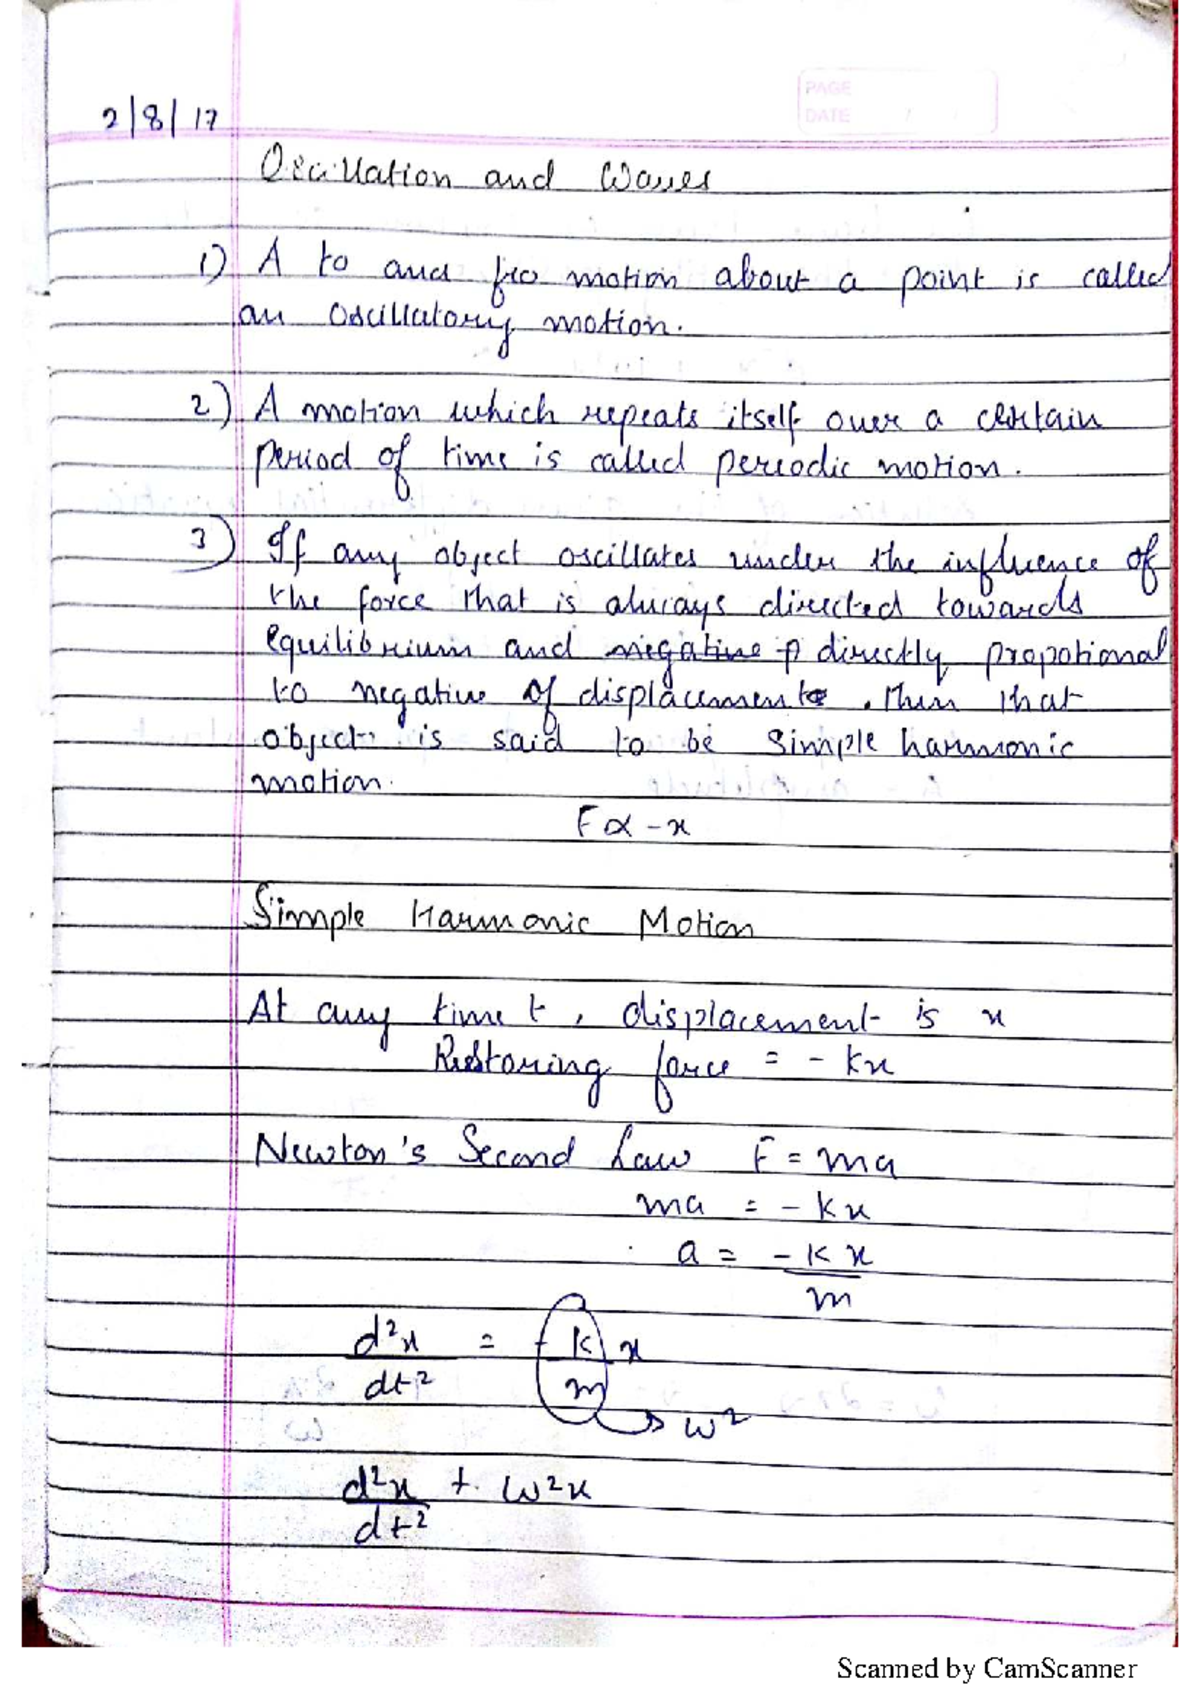 PAGE
DATE
2/8/17
Oscillation and Waves
1) A to and fro motion about a point is called
an oscillatory motion.
2) A motion which repeats itself over a certain
period of time is called periodic motion.
3) If any object oscillates under the influence of
the force that is always directed towards
equilibrium and negative p directly propotional
to negative of displacement, then that
object is said to be simple harmonic
motion.
F ∝ -x
Simple Harmonic Motion
At any time t, displacement is x
Restoring force = - kx
Newton's Second Law F = ma
ma = - kx
a = - kx
m
d²x = - k x
dt² m
→ w²
d²x + w²x
dt²
Scanned by CamScanner